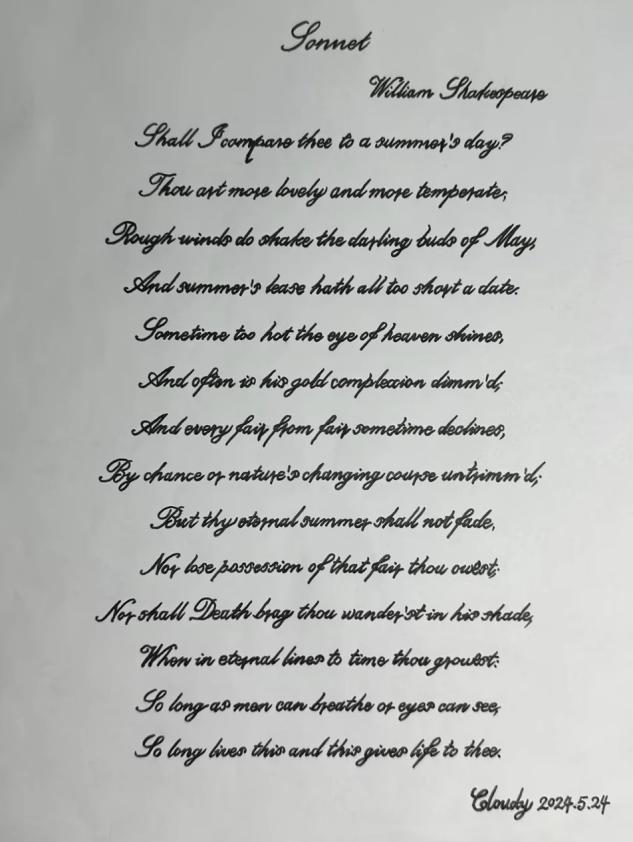 Sonnet
William Shakespeare
Shall I compare thee to a summer's day?
Thou art more lovely and more temperate;
Rough winds do shake the darling buds of May,
And summer's lease hath all too short a date:
Sometime too hot the eye of heaven shines,
And often is his gold complexion dimm'd;
And every fair from fair sometime declines,
By chance or nature's changing course untrimm'd;
But thy eternal summer shall not fade,
Nor lose possession of that fair thou owest;
Nor shall Death brag thou wander'st in his shade,
When in eternal lines to time thou growest:
So long as men can breathe or eyes can see,
So long lives this and this gives life to thee.
Cloudy 2024.5.24